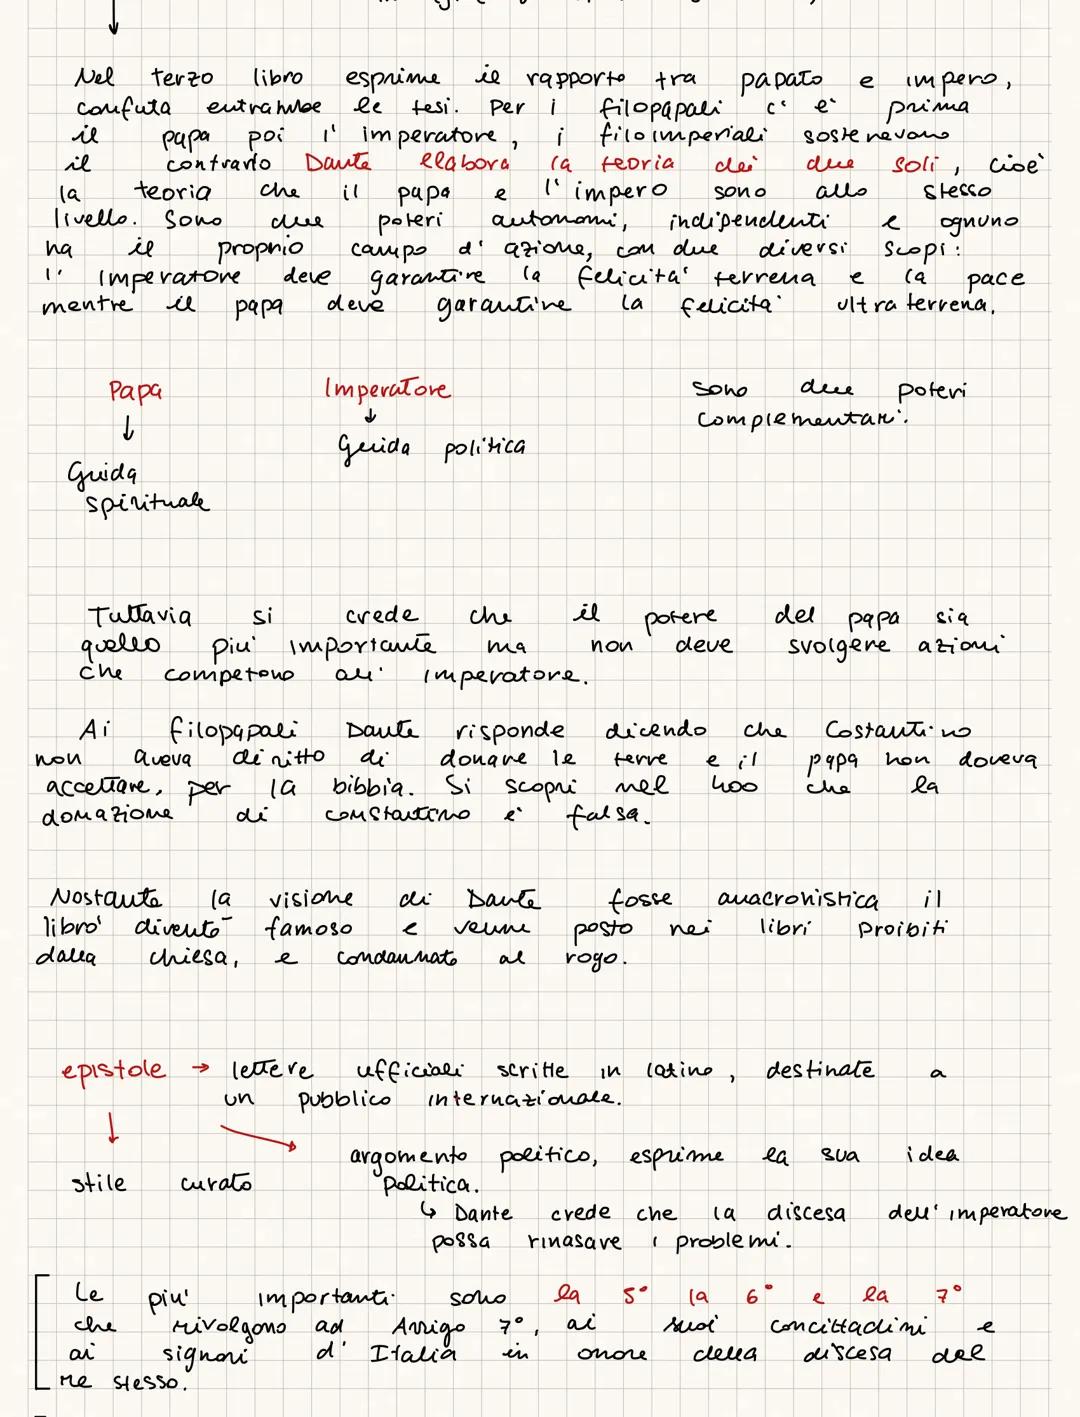 Nel terzo libro esprime il rapporto tra papato e impero,
confuta entrambe le tesi. Per i filopapali c' e' prima
il papa poi l' imperatore, i filoimperiali sostenevano
il contrario Dante elabora la teoria dei due soli, cioè
la teoria che il papa e l' impero sono allo stesso
livello. Sono due poteri autonomi, indipendenti e ognuno
ha il proprio campo d' azione, con due diversi scopi:
l' Imperatore deve garantire la felicità terrena e la pace
mentre il papa deve garantire la felicità ultra terrena.
Papa
Imperatore
sono due poteri
complementari.
Guida politica
Guida
spirituale
Tuttavia si crede che il potere del papa sia
quello piu' importante ma non deve svolgere azioni
che competono all' imperatore.
Ai filopapali Dante risponde dicendo che Costantino
non aveva diritto di donare le terre e il papa non doveva
accettare, per la bibbia. Si scopri nel 400 che la
donazione di constantino e' falsa.
Nostante la visione di Dante fosse anacronistica il
libro' diventò famoso e venne posto nei libri proibiti
dalla chiesa, e condannato al rogo.
epistole → lettere ufficiali scritte in latino, destinate a
un pubblico internazionale.
argomento politico, esprime la sua idea
politica.
stile curato
↳ Dante crede che la discesa dell' imperatore
possa rinasare i problemi.
Le piu' importanti sono la 5° la 6° e la 7°
che rivolgono ad Arrigo 7°, ai suoi concittadini e
ai signori d' Italia in onore della discesa del
re stesso.